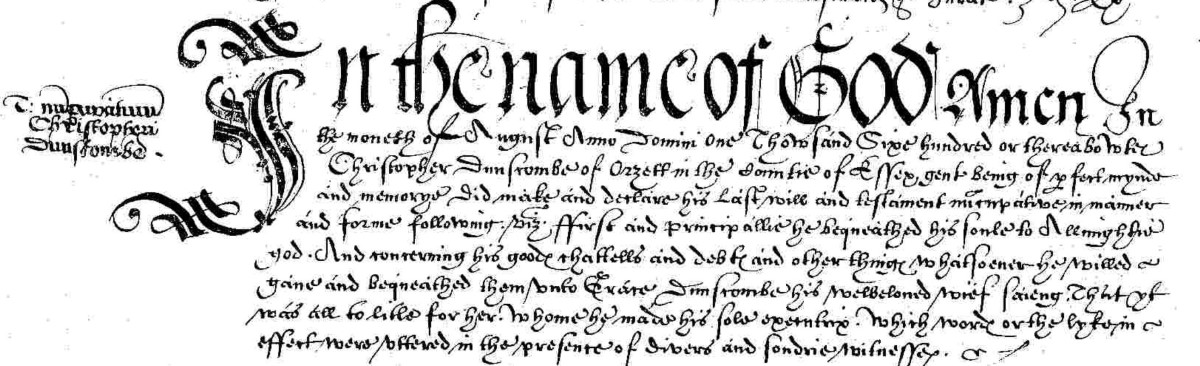 T: nuncupativum
Christopheri
Dunscombe.
In the name of God Amen In
the moneth of August Anno Domini One Thowsand Sixe hundred or thereabowtes
Christopher Dunscombe of Orzett in the Countie of Essex, gent being of pfect mynde
and memorye did make and declare his last will and testament nuncupative, in manner
and forme following. viz. ffirst and principallie he bequeathed his soule to Allmightie
god. And concerning his goodes chattells and debtes and other thinges whatsoever he willed
gave and bequeathed them vnto Grace Dunscombe his welbeloved wief saieng. That yt
was all to litle for her. Whome he made his sole executrix. Which wordes or the lyke, in
effect were vttered in the presence of divers and sondrie witnesses.